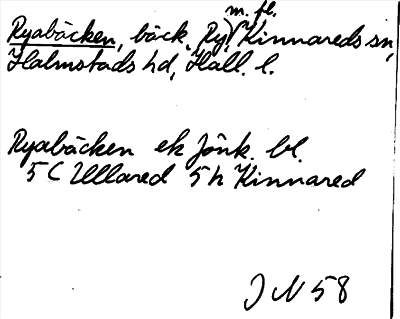 m. fl.
Ryabäcken, bäck, Ry, Kinnareds sn,
Halmstads hd, Hall. l.
Ryabäcken ek Jönk. bl.
5 C Ullared 5 h Kinnared
J N 58